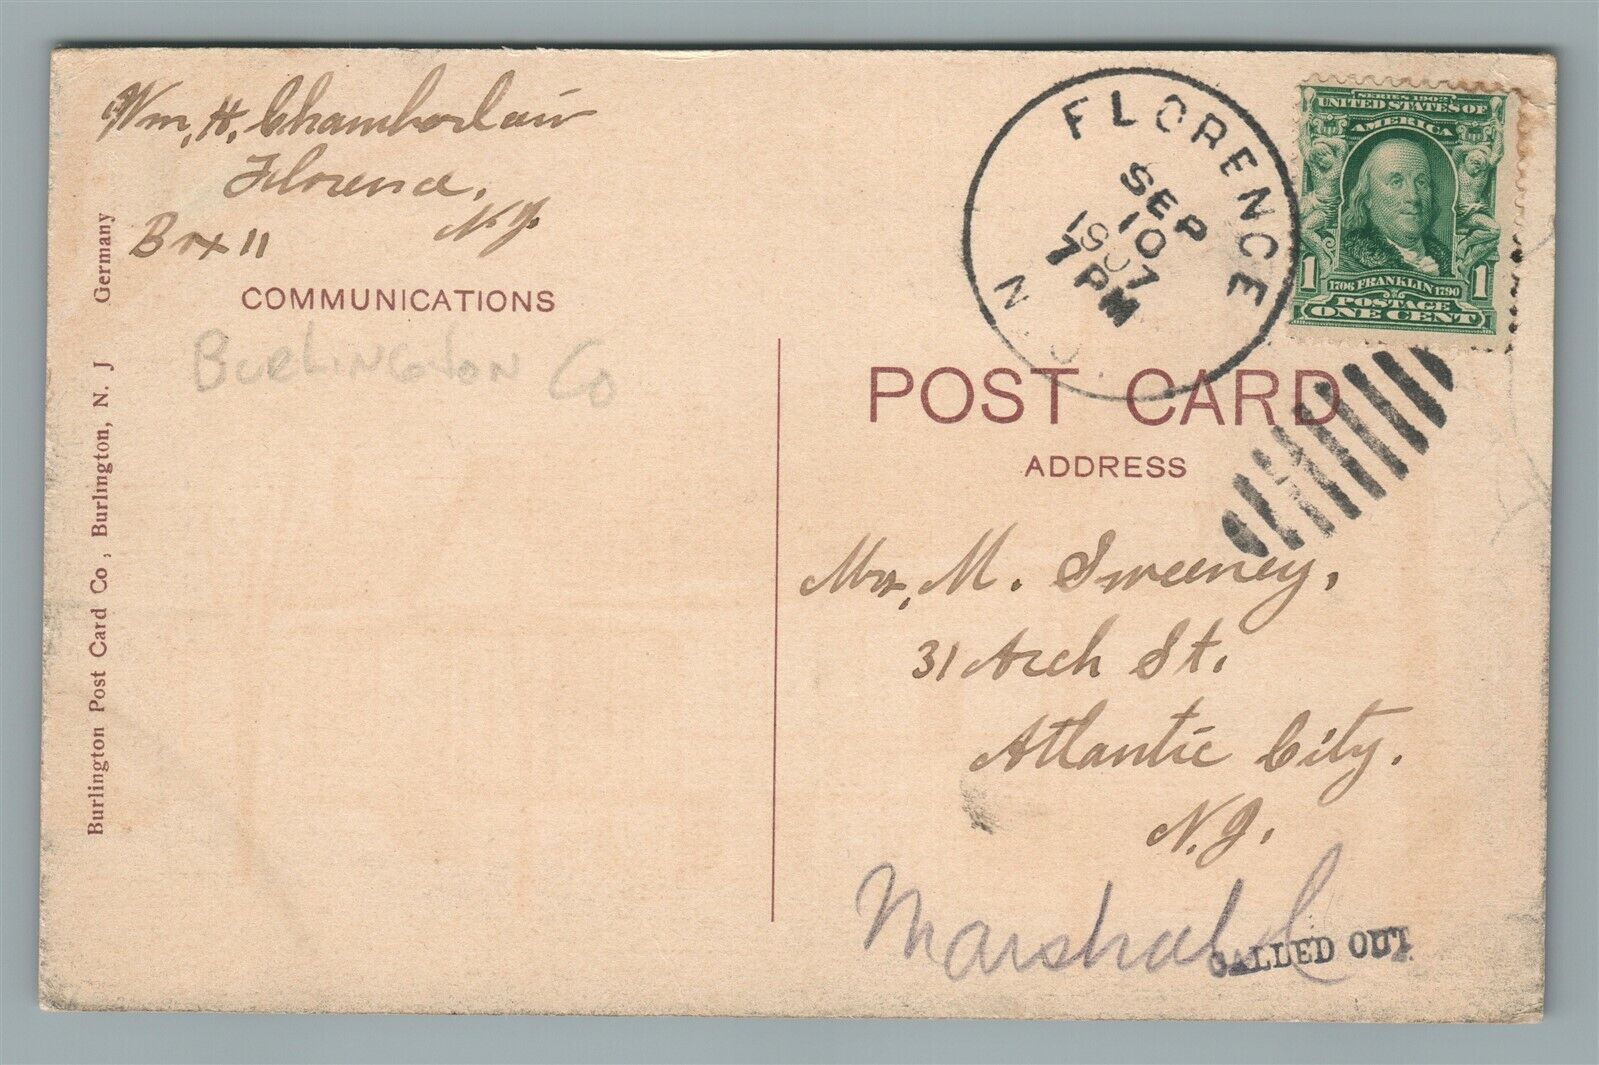 Wm, H, Chamberlain
Florence,
N.J.
Box 11
COMMUNICATIONS
Burlington Co
Burlington Post Card Co, Burlington, N. J Germany
FLORENCE
SEP
10
1907
7 PM
N.J.
SERIES 1902
UNITED STATES OF
AMERICA
1706 FRANKLIN 1790
1 POSTAGE 1
ONE CENT
POST CARD
ADDRESS
Mr, M. Sweeney,
31 Arch St,
Atlantic City,
N.J.
Marshall
CALLED OUT